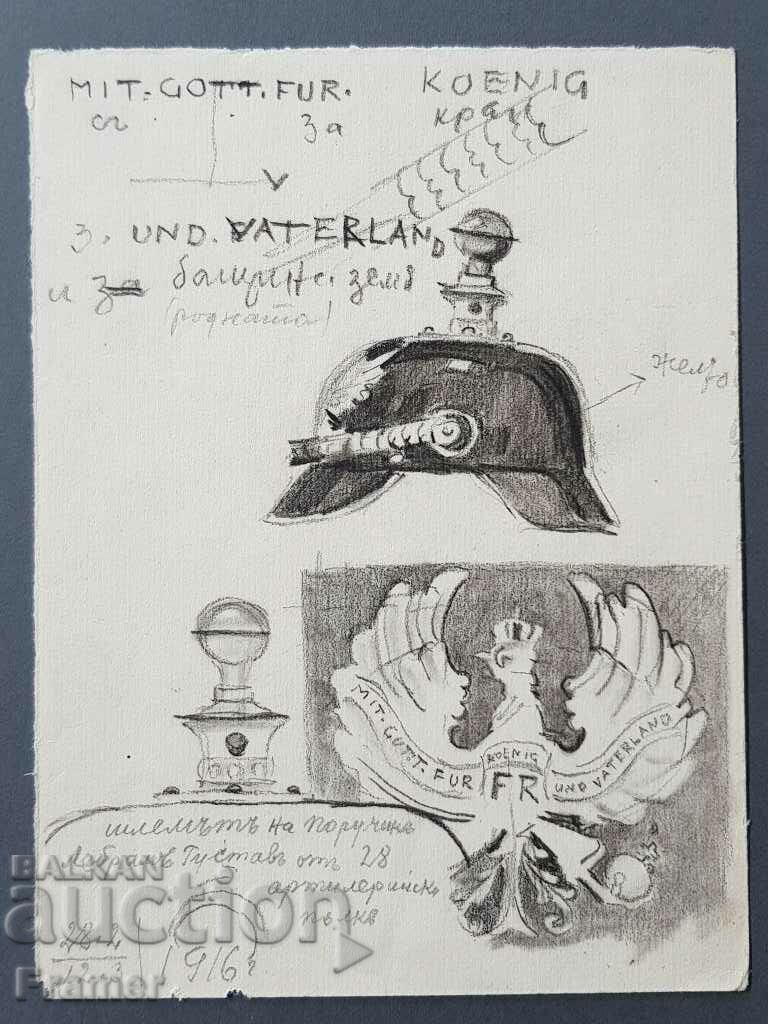 MIT. GOTT. FUR. KOENIG
съ за краль
3. UND. VATERLAND
и за бащин. земя
(родната)
желязо
MIT. GOTT. FUR KOENIG UND VATERLAND
FR
шлемътъ на поручикъ
Густавъ отъ 28
артилерийск.
полкъ
1916 г.
BALKAN
auction
Framer